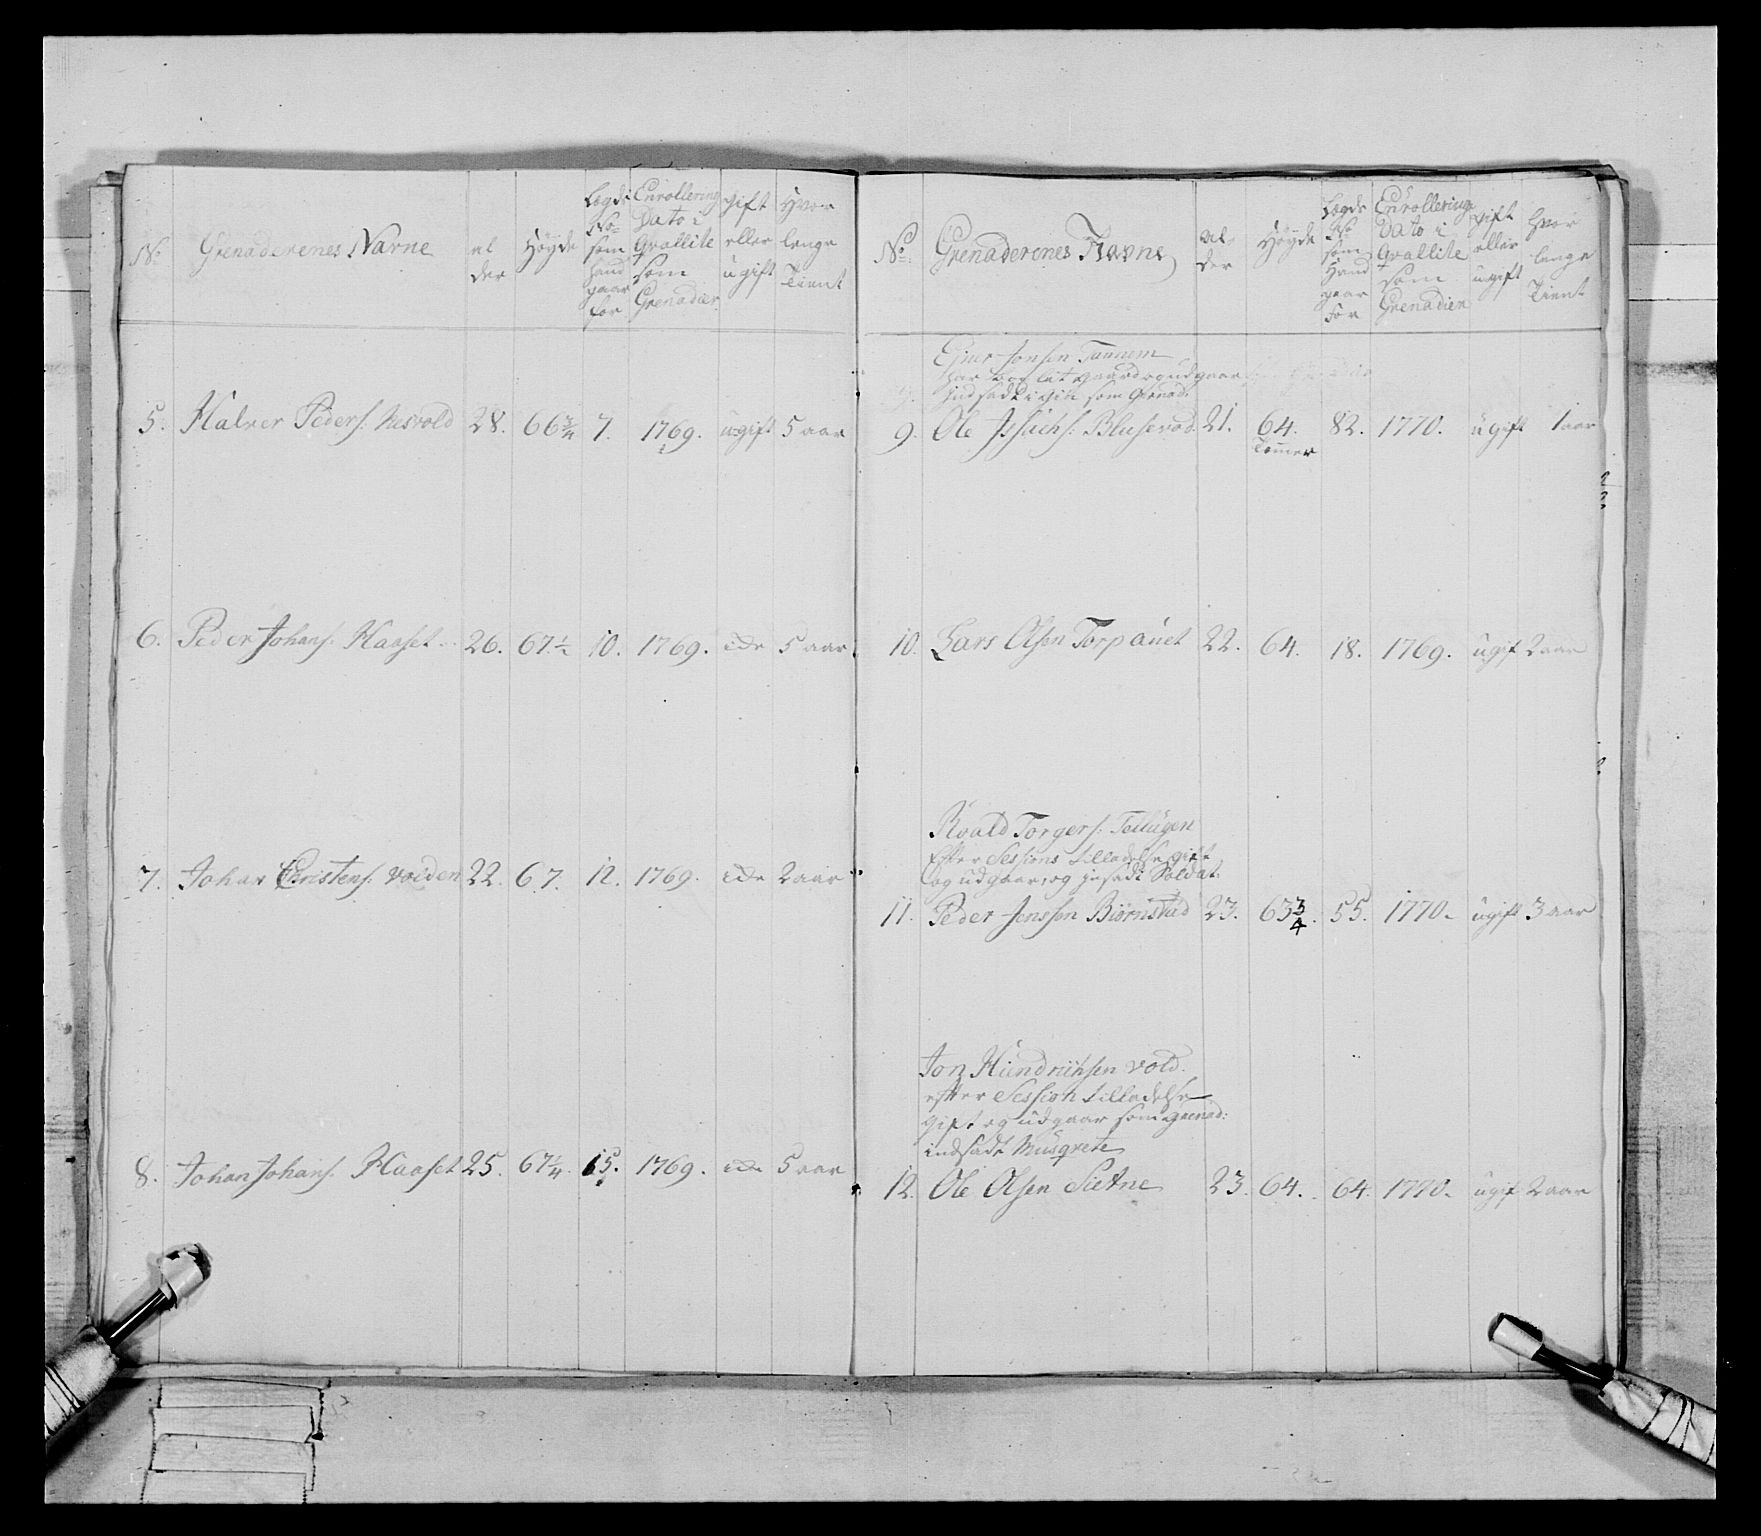 No
Grenaderenes Navne
al
der
Höyde
Lægds
No
som
Hand
gaar
for
Enrollering
Dato i
Qvallite
som
Grenadier
gift
eller
ugift
Hvor
lenge
Tient
5. Halver Peders. Nesvold 28. 66 3/4 7. 1769. ugift 5 aar
6. Peder Johans. Haaset 26. 67 1/2 10. 1769. ide 5 aar
7. Johan Christens. Volden 22. 67. 12. 1769. ide 2 aar
8. Johan Johans. Haaset 25. 67 1/4. 15. 1769. ide 5 aar
No
Grenaderenes Navne
al-
der
Höyde
Lægds
No
som
Hand
gaar
for
Enrollerings
Dato i
Qvallite
som
Grenadier
gift
eller
ugift
hvor
lenge
Tient
Ejner Jonsen Tannem
har gaard og udgaar
Indsadt i som Grenad:
9. Ole Blusevold. 21. 64. 82. 1770. ugift 1 aar
Tommer
10. Lars Olsen Torpauet 22. 64. 18. 1769. ugif 2 aar
Roald Torgers.
Efter Sessions tilladelse gift
og udgaar, og indsadt Soldat.
11. Peder Jensen Biörnstad 23. 63 3/4. 55. 1770. ugift 3 aar
Jon Hendrichsen Vold.
efter Session tilladelse
gift og udgaar som grenad:
indsadt Musqvete
12. Ole Olsen Sietne 23. 64. 64. 1770. ugif 2 aar